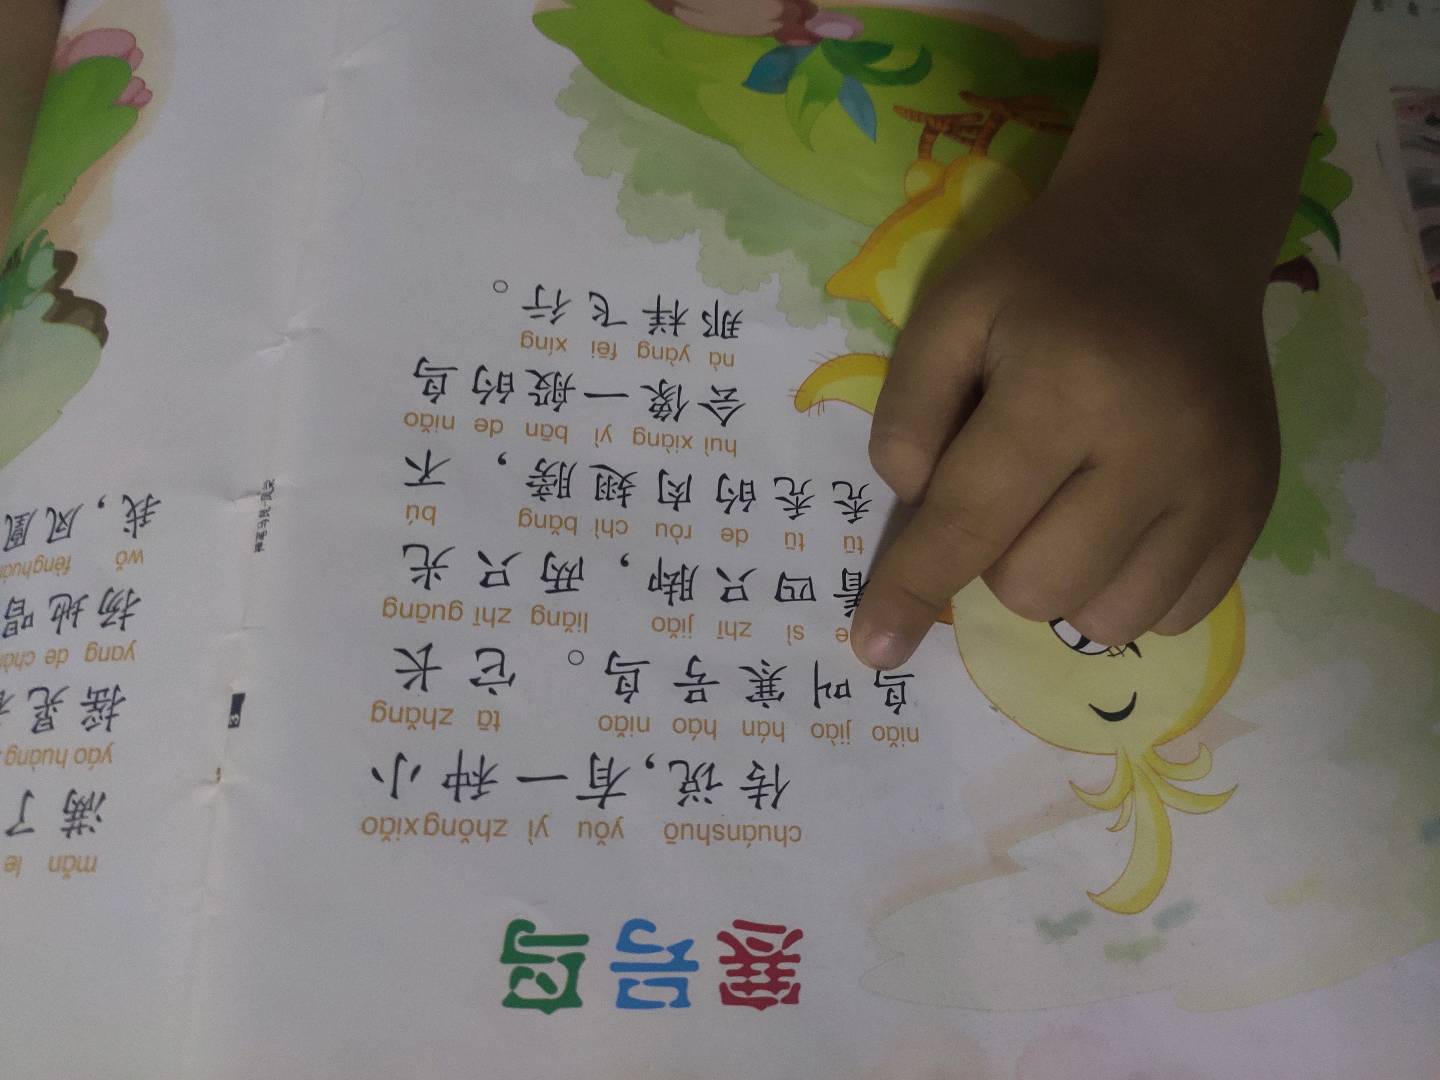 寒号鸟
chuánshuō yǒu yì zhǒng xiǎo
传说，有一种小
niǎo jiào hán háo niǎo tā zhǎng
鸟叫寒号鸟。它长
sì zhī jiǎo liǎng zhī guāng
着四只脚，两只光
tū tū de ròu chì bǎng bú
秃秃的肉翅膀，不
huì xiàng yì bān de niǎo
会像一般的鸟
nà yàng fēi xíng
那样飞行。
mǎn le
满了
yáo huàng
摇晃
yang de
扬地唱
wǒ fènghuáng
我，凤凰